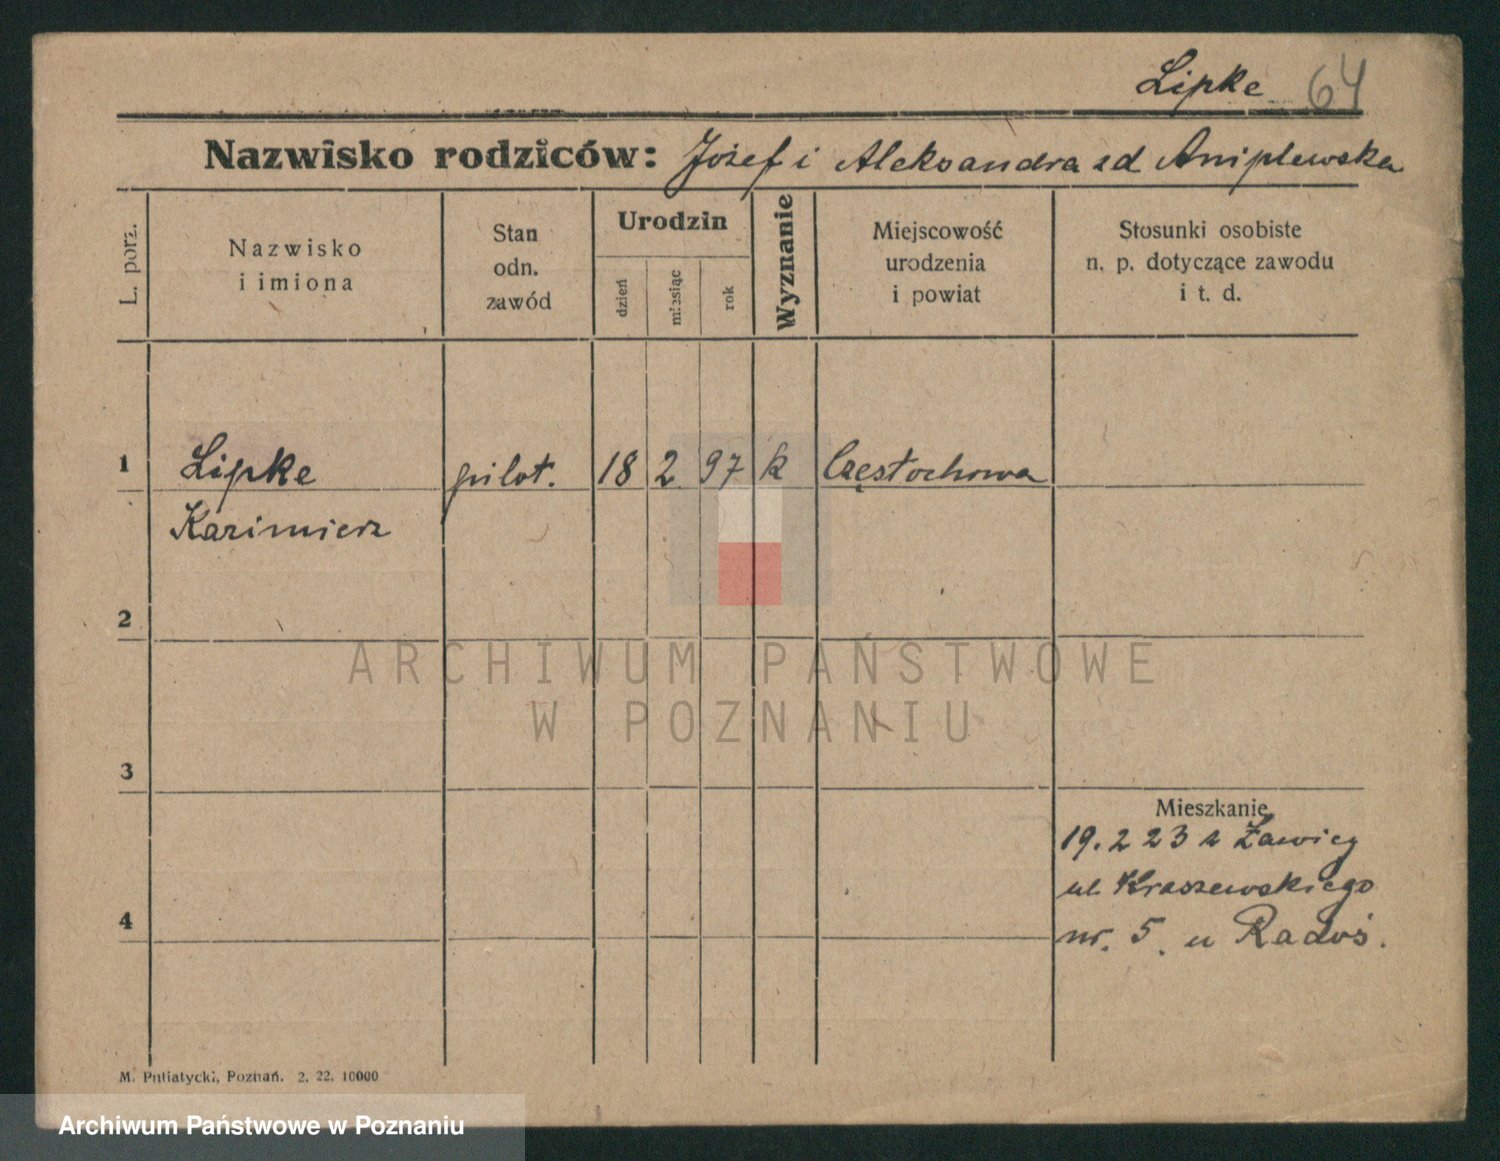 Lipke 64
Nazwisko rodziców: Józef i Aleksandra zd Aniplewska
L. porz.
Nazwisko
i imiona
Stan
odn.
zawód
Urodzin
dzień
miesiąc
rok
Wyznanie
Miejscowość
urodzenia
i powiat
Stosunki osobiste
n. p. dotyczące zawodu
i t. d.
1 Lipke pilot. 18 2 97 k Częstochowa
Kazimierz
2
ARCHIWUM PAŃSTWOWE
W POZNANIU
3
Mieszkanie
19. 2 23 z Ławicy
ul. Kraszewskiego
4 nr. 5. u Radoś.
M. Putiatycki, Poznań. 2. 22. 10000
Archiwum Państwowe w Poznaniu